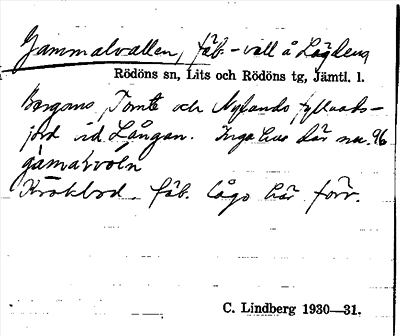 Gammalvallen, fäb.-vall å Lögdens
Rödöns sn, Lits och Rödöns tg, Jämtl. l.
Bergoms, Tomte och Nylands fyllnads-
jord vid Långan. Inga hus där nu. 96
gámaɫvoln
Krokbod. fäb. lågo här förr.
C. Lindberg 1930—31.